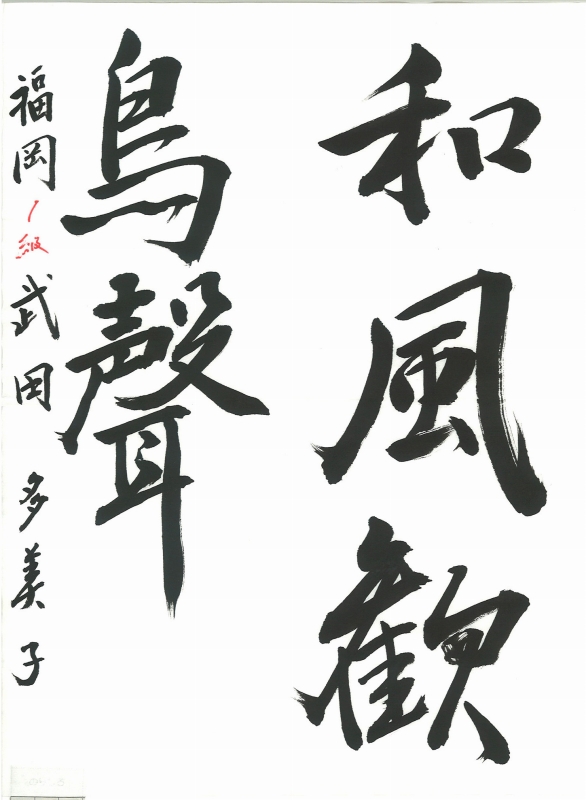 和風歓
鳥聲
福岡 1級 武田 多美子